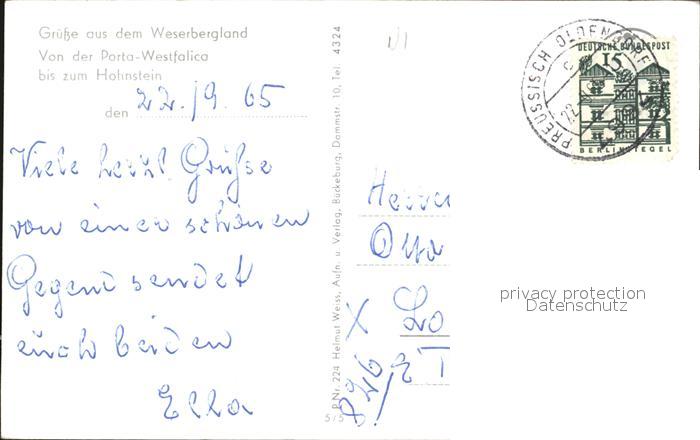 Grüße aus dem Weserbergland
Von der Porta-Westfalica
bis zum Hohnstein
den 22./9. 65
Viele herzl. Grüße
von einer schönen
Gegend sendet
euch beiden
Ella
P.Nr. 224 Helmut Weiss, Aufn. u. Verlag, Bückeburg, Dammstr. 10, Tel. 4324
5/5
PREUSSISCH OLDENDORF
DEUTSCHE BUNDESPOST
15
BERLIN-TEGEL
Herrn
Otto
X Lo
privacy protection
Datenschutz